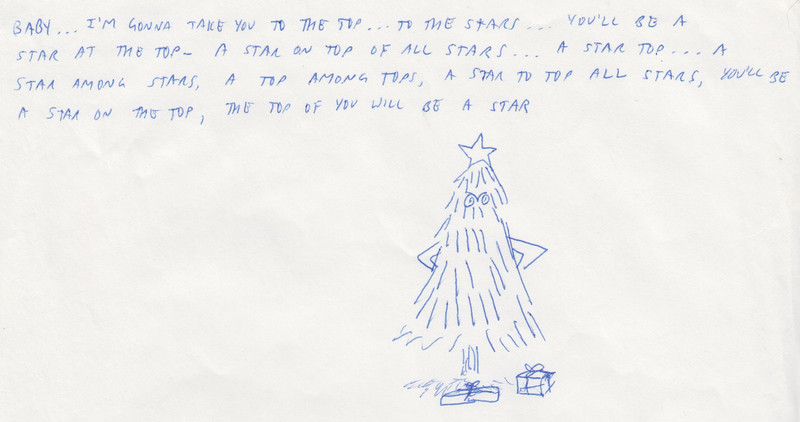 BABY... I'M GONNA TAKE YOU TO THE TOP... TO THE STARS... YOU'LL BE A
STAR AT THE TOP– A STAR ON TOP OF ALL STARS... A STAR TOP... A
STAR AMONG STARS, A TOP AMONG TOPS, A STAR TO TOP ALL STARS, YOU'LL BE
A STAR ON THE TOP, THE TOP OF YOU WILL BE A STAR